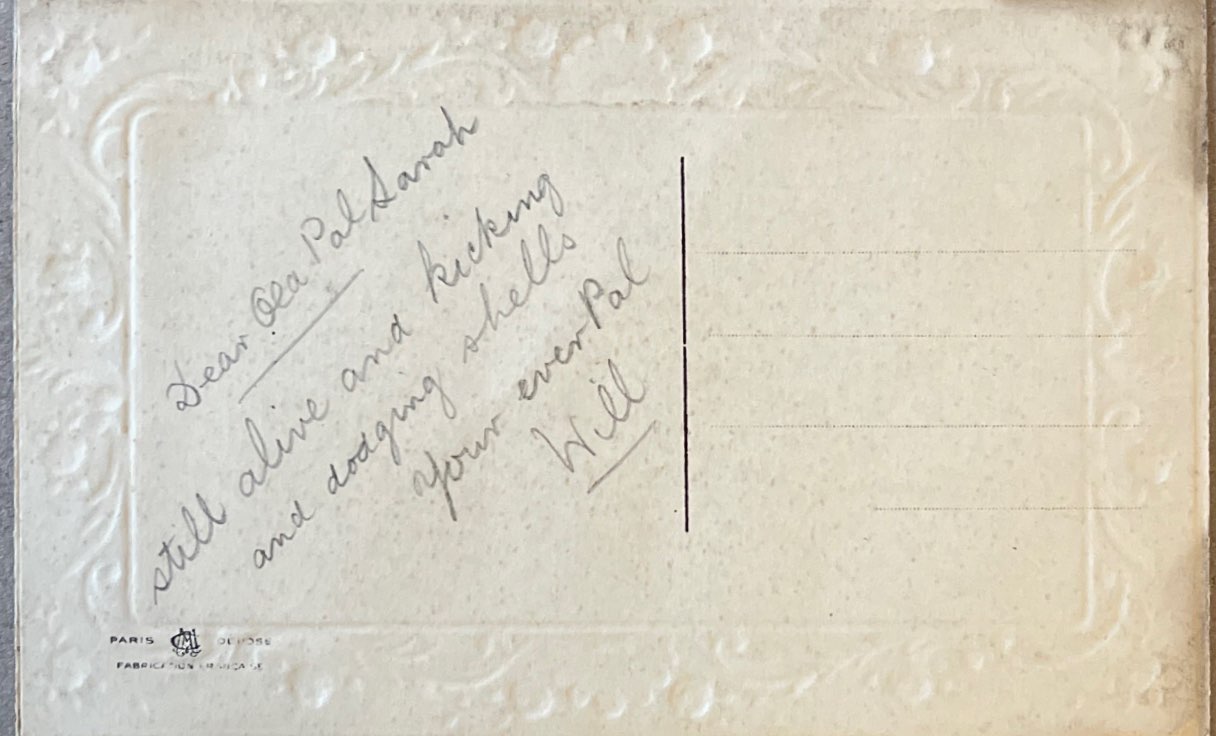 Dear Old Pal Sarah
still alive and kicking
and dodging shells
your ever Pal
Will
PARIS DEPOSE
FABRICATION FRANÇAISE